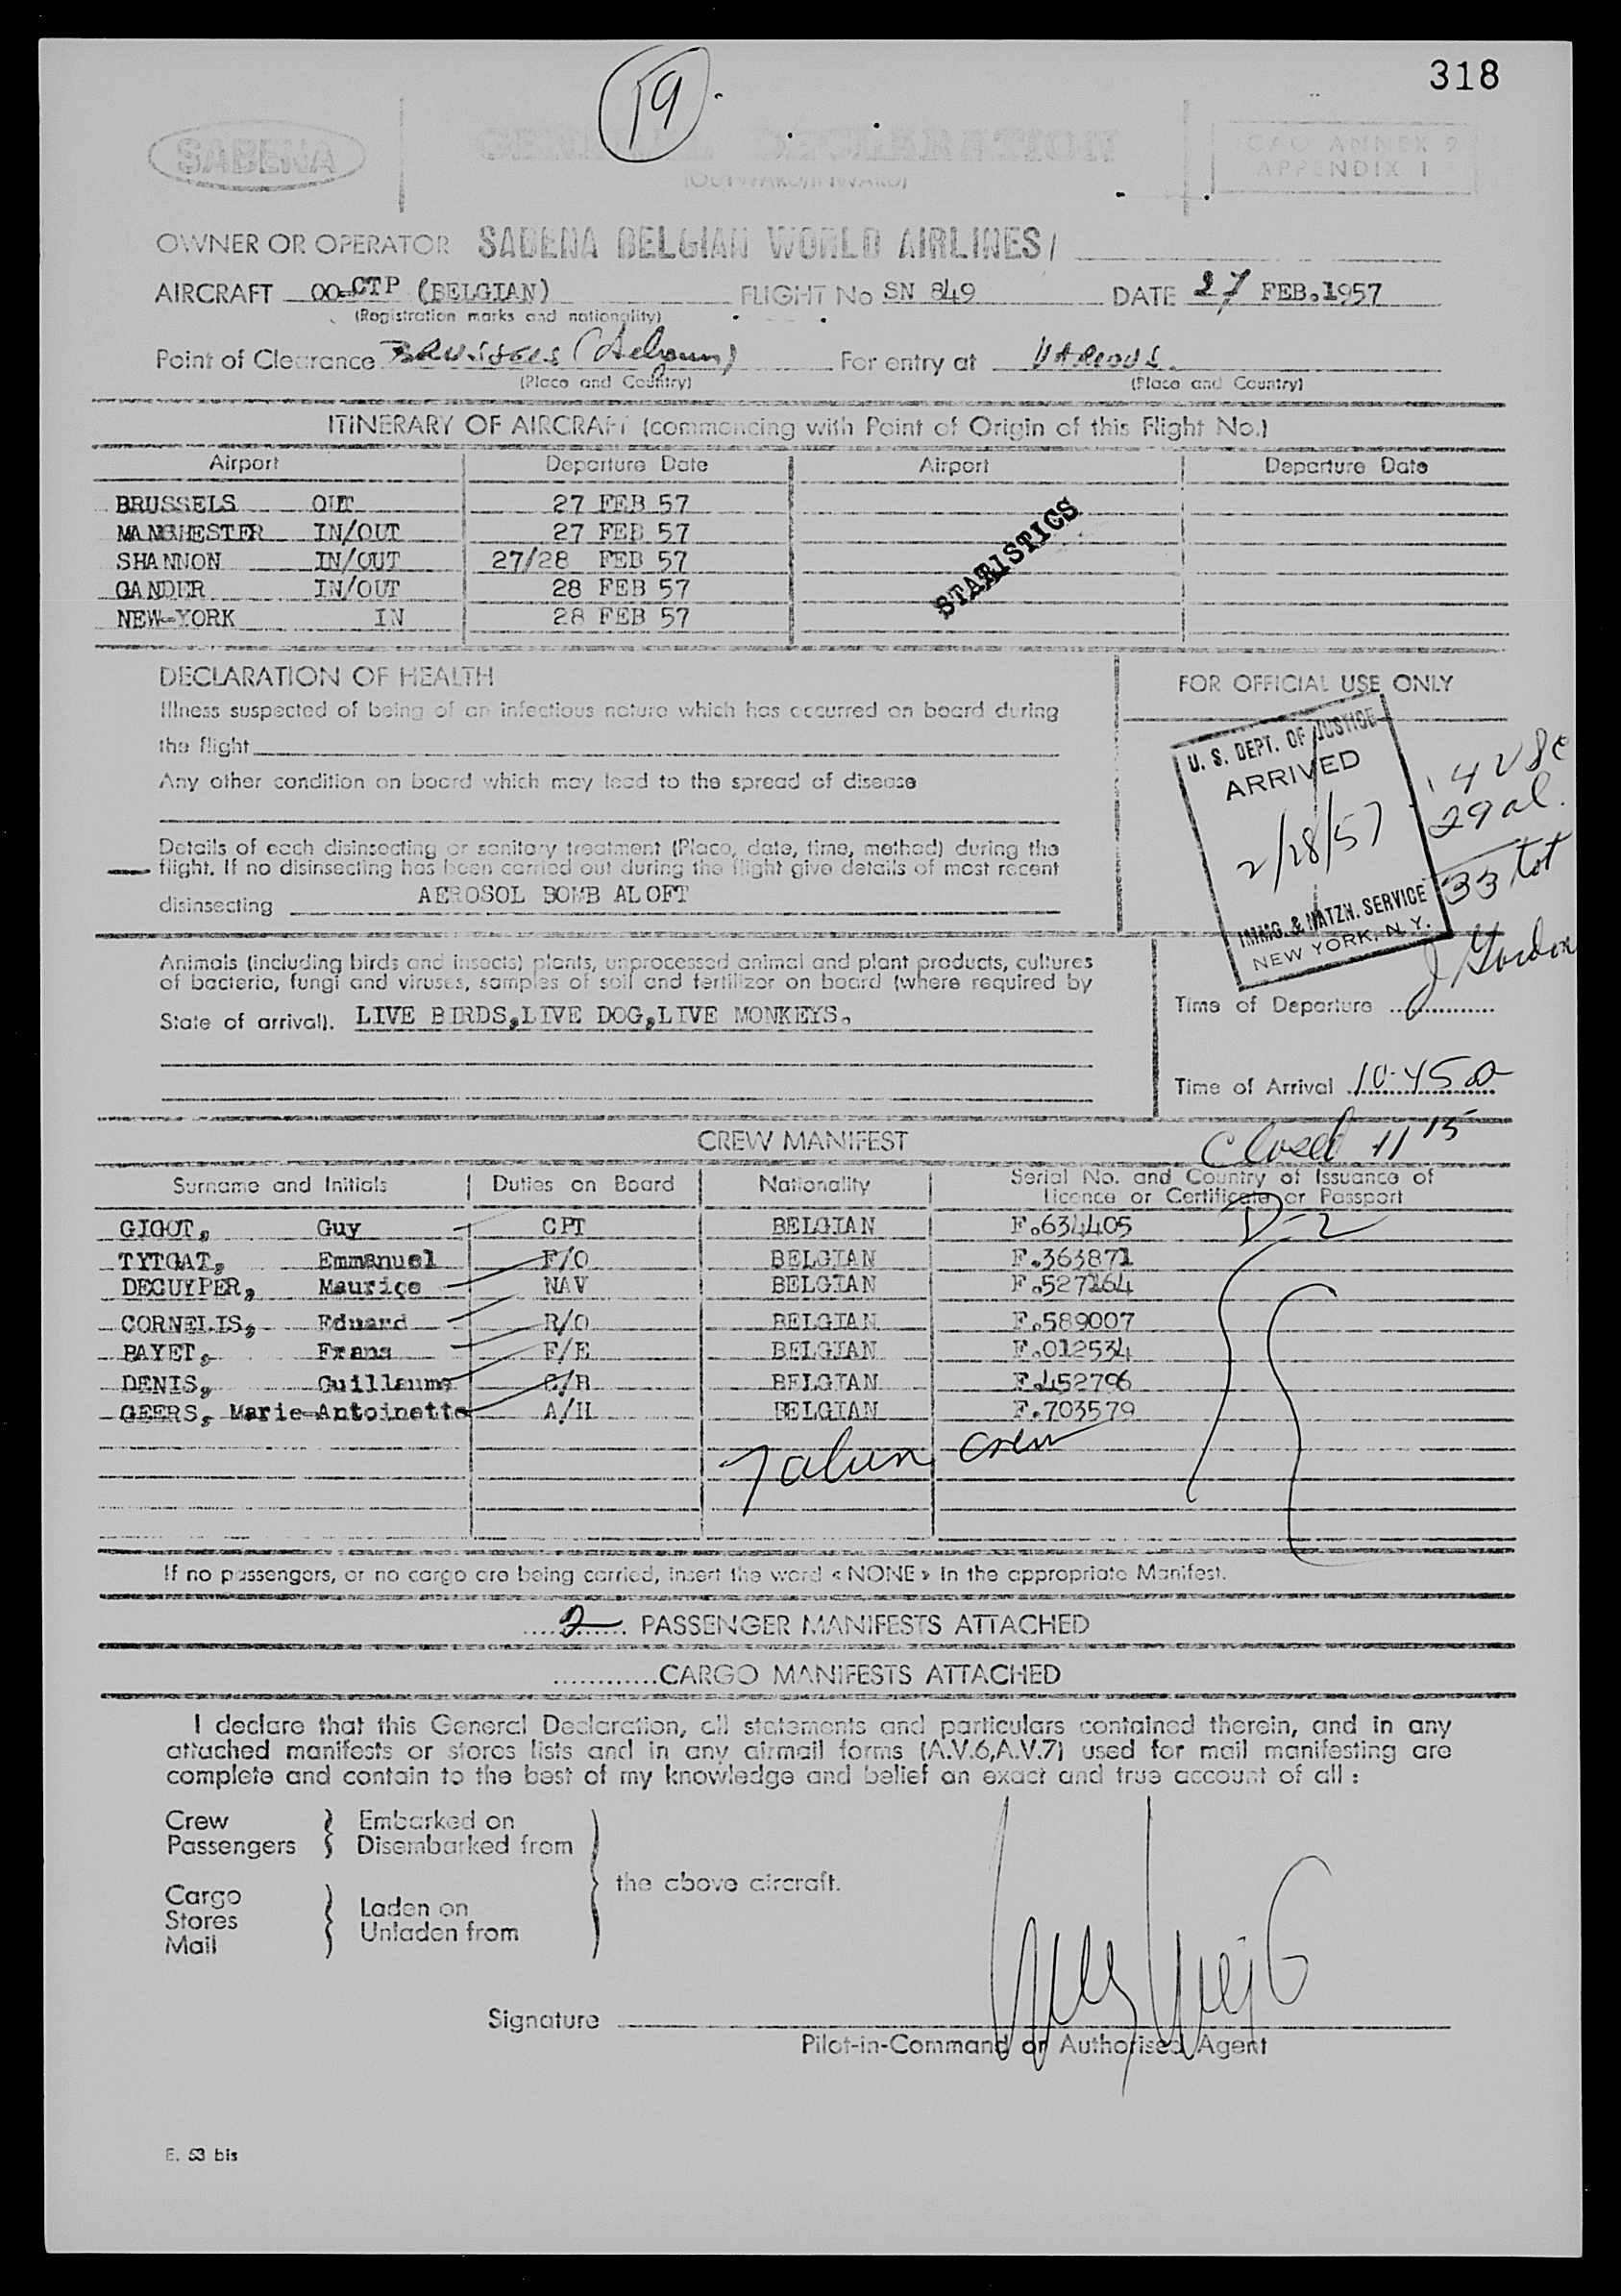 318
19
SABENA
GENERAL DECLARATION
(OUTWARD/INWARD)
ICAO ANNEX 9
APPENDIX 1
OWNER OR OPERATOR SABENA BELGIAN WORLD AIRLINES/
AIRCRAFT OO-CTP (BELGIAN) FLIGHT No SN 849 DATE 27 FEB.1957
(Registration marks and nationality)
Point of Clearance BRUSSELS (Belgium) For entry at VARIOUS.
(Place and Country) (Place and Country)
ITINERARY OF AIRCRAFT (commencing with Point of Origin of this Flight No.)
Airport Departure Date Airport Departure Date
BRUSSELS OUT 27 FEB 57
MANCHESTER IN/OUT 27 FEB 57
SHANNON IN/OUT 27/28 FEB 57
GANDER IN/OUT 28 FEB 57
NEW-YORK IN 28 FEB 57
STATISTICS
DECLARATION OF HEALTH
Illness suspected of being of an infectious nature which has occurred on board during
the flight
Any other condition on board which may lead to the spread of disease
Details of each disinsecting or sanitary treatment (Place, date, time, method) during the
flight. If no disinsecting has been carried out during the flight give details of most recent
disinsecting AEROSOL BOMB ALOFT
FOR OFFICIAL USE ONLY
U. S. DEPT. OF JUSTICE
ARRIVED
2/28/57
IMMG. & NATZN. SERVICE
NEW YORK, N. Y.
4 USC
29 al.
33 tot
J Gordon
Animals (including birds and insects) plants, unprocessed animal and plant products, cultures
of bacteria, fungi and viruses, samples of soil and fertilizer on board (where required by
State of arrival). LIVE BIRDS,LIVE DOG,LIVE MONKEYS.
Time of Departure
Time of Arrival 10:45 a
Closed 11 15
CREW MANIFEST
Surname and Initials Duties on Board Nationality Serial No. and Country of Issuance of
Licence or Certificate or Passport
GIGOT, Guy CPT BELGIAN F.634405
D-2
TYTGAT, Emmanuel F/O BELGIAN F.363871
DECUYPER, Maurice NAV BELGIAN F.527164
CORNELIS, Eduard R/O BELGIAN F.589007
PAYET, Frans F/E BELGIAN F.012534
DENIS, Guillaume C/B BELGIAN F.452796
GEERS, Marie-Antoinette A/H BELGIAN F.703579
crew
If no passengers, or no cargo are being carried, insert the word « NONE » in the appropriate Manifest.
2 PASSENGER MANIFESTS ATTACHED
CARGO MANIFESTS ATTACHED
I declare that this General Declaration, all statements and particulars contained therein, and in any
attached manifests or stores lists and in any airmail forms (A.V.6,A.V.7) used for mail manifesting are
complete and contain to the best of my knowledge and belief an exact and true account of all :
Crew Embarked on
Passengers Disembarked from
the above aircraft.
Cargo
Stores Laden on
Mail Unladen from
Signature
Pilot-in-Command or Authorised Agent
E. 53 bis